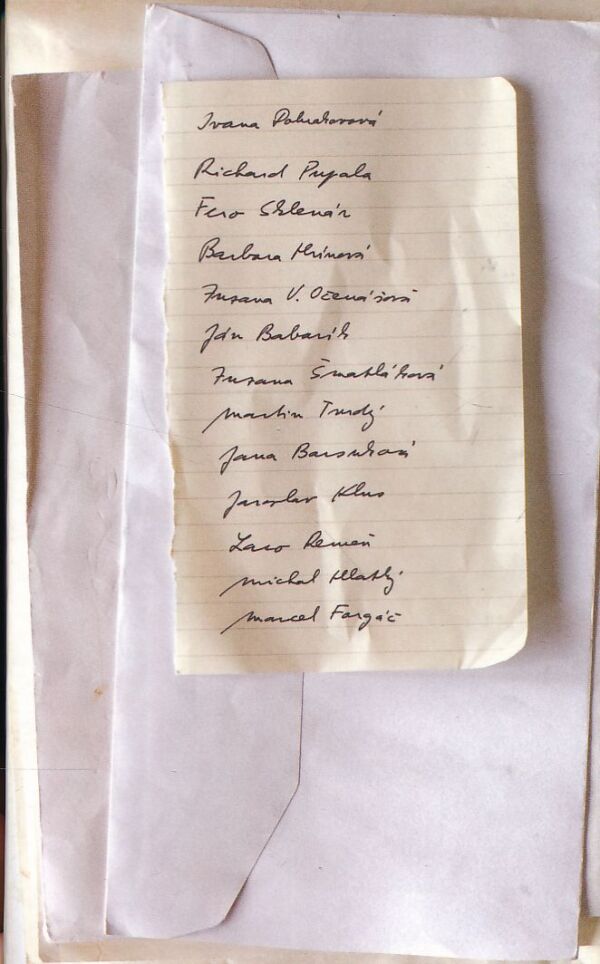 Ivana Dobrakovová
Richard Pupala
Fero Sklenár
Barbara Hrínová
Zuzana V. Očenášová
Ján Babarík
Zuzana Šmatláková
Martin Tvrdý
Jana Barsuková
Jaroslav Klus
Laco Remeň
Michal Hlatký
Marcel Forgáč